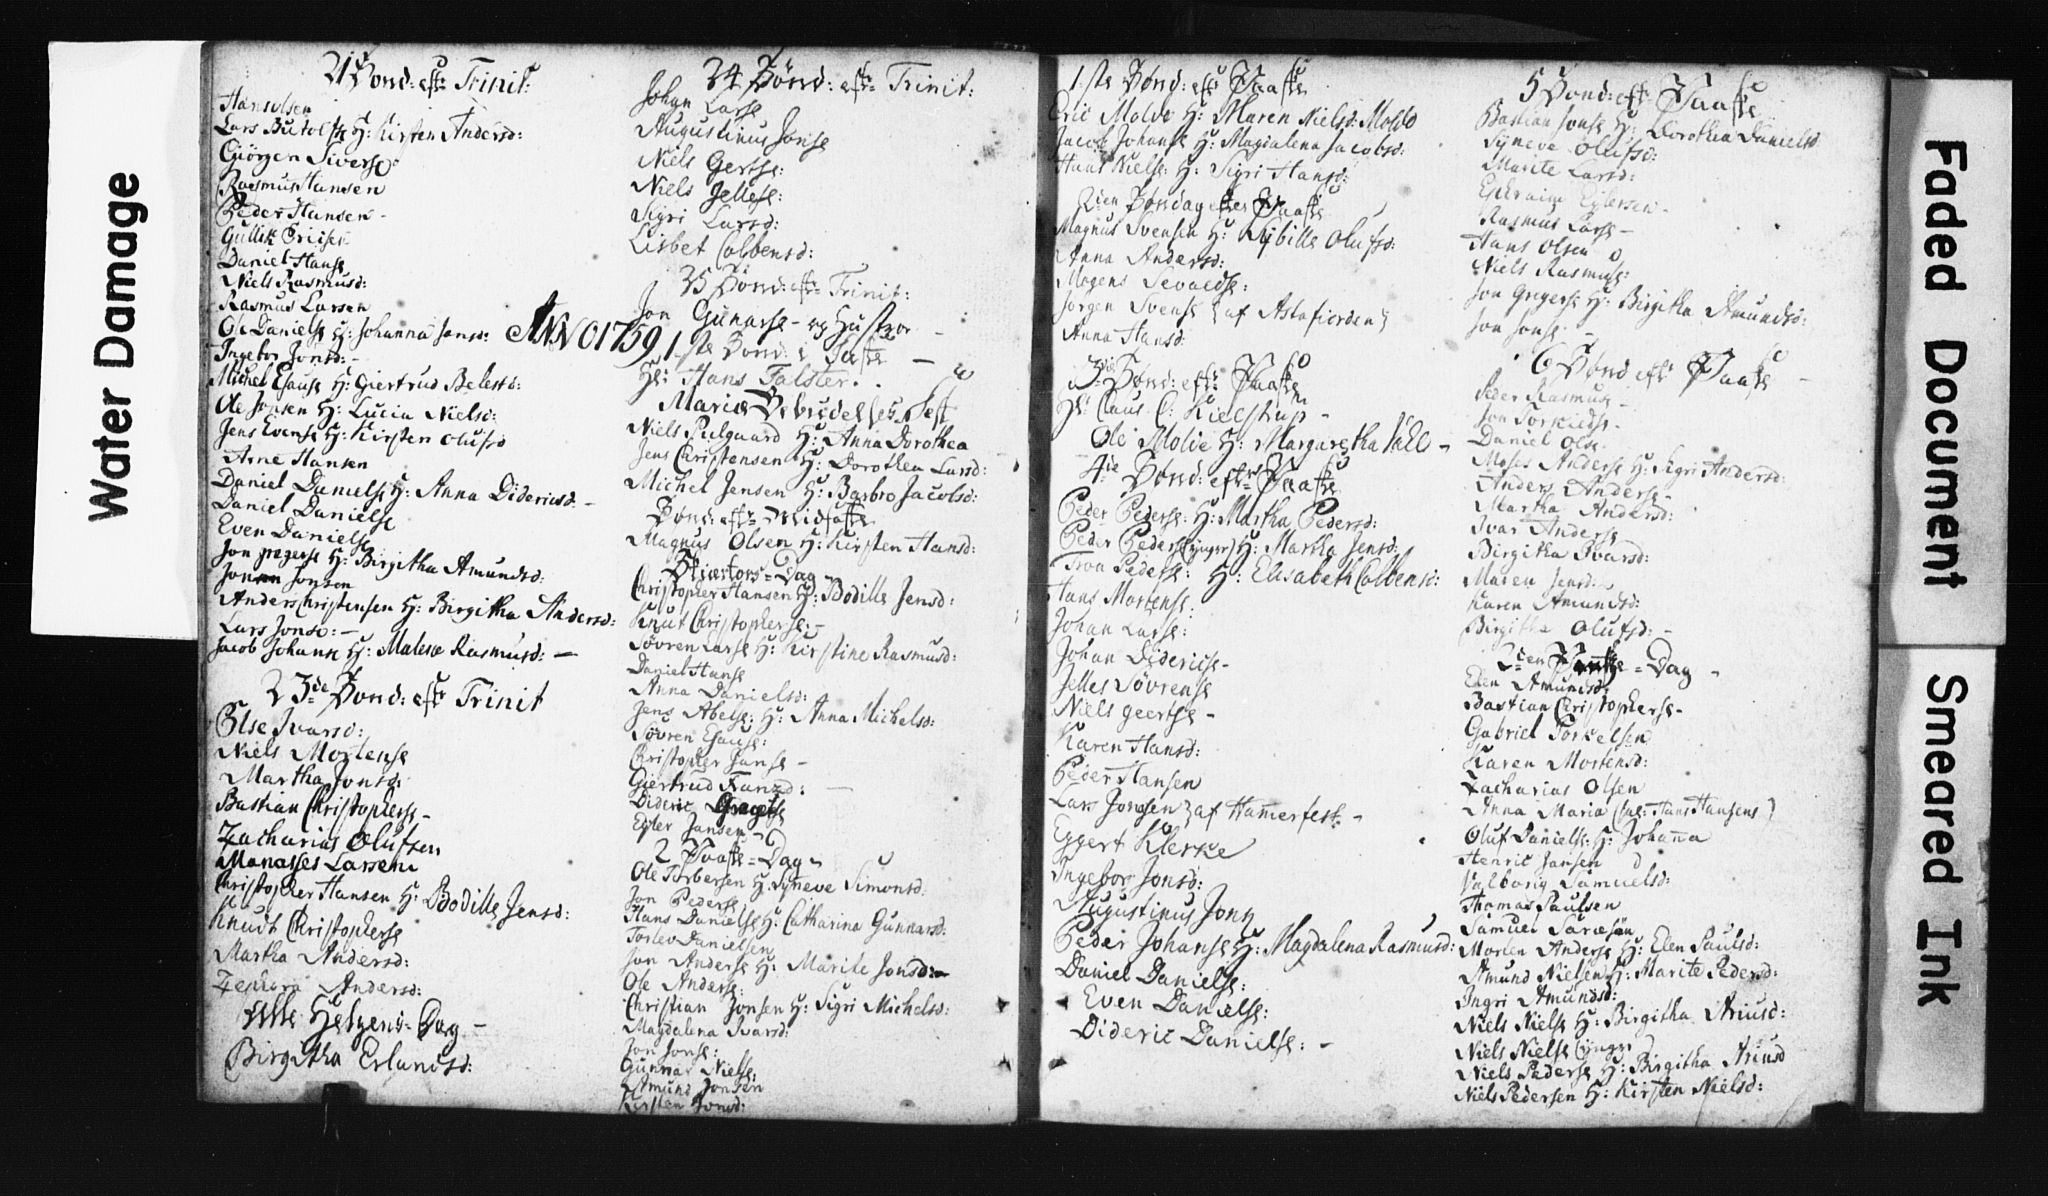 Water Damage
21 Sønd: eft: Trinit:
Hans Olsen
Lars Butolfse H: Kirsten Andersd:
Giörgen Siverse
Rasmus Hansen
Peder Hansen -
Gullik Ericsen
Daniel Hanse
Niels Rasmusd:
Rasmus Larsen
Ole Danielse H: Johanna Jonsd:
Ingebor Jonsd: -
Michel Esause H: Giertrud Belestd:
Ole Jonsen H: Lucia Nielsd:
Jens Evense H: Kirsten Olufsd
Arne Hansen
Daniel Danielse H: Anna Didericsd: -
Daniel Danielse
Even Danielse
Jon gregerse H: Birgitha Amundsd:
Jon Jonsen
Anders Christensen H: Birgitha Andersd:
Lars Jonse: -
Jacob Johanse H: Malene Rasmusd: -
23de Sønd: eft: Trinit
Else Ivarsd:
Niels Mortense
Martha Jonsd:
Bastian Christopherse -
Zacharias Olufsen
Manasses Larsen
Christopher Hansen H: Bodille Jensd:
Knudt Christopherse
Martha Andersd:
Zephora Andersd:
Alle Helgens-Dag -
Birgitha Erlandsd:
24 Sønd: eft: Trinit:
Johan Larse
Augustinus Jonse
Niels Gertse:
Niels Jellese:
Sigri Larsd:
Lisbet Colbensd:
25 Sønd: eft: Trinit:
Jon Gunarse - og Hustror -
ANNO 1759 1ste Sønd: i Faste -
Hr: Hans Falster.
Mariæ Bebudelses Fest
Niels Pulgaard H: Anna Dorothea
Jens Christensen H: Dorothea Larsd:
Michel Jensen H: Barbro Jacobsd:
Sønd: eft: Midfaste
Magnus Olsen H: Kirsten Hansd:
Skiærtors-Dag
Christopher Hansen H: Bodille Jensd:
Knut Christopherse: -
Søvren Larse H: Kirstine Rasmusd:
Daniel Hanse
Anna Danielsd:
Jens Abelse: H: Anna Michelsd:
Søvren Esause:
Christopher Hanse -
Giertrud Hansd: -
Dideric Gregerse
Egler Jansen -
2 Paaske-Dag
Ole Torbersen H: Syneve Simonsd:
Jon Pederse
Hans Danielse H: Catharina Gunnarsd:
Torlev Danielsen
Jon Anderse H: Marite Jonsd: -
Ole Anderse:
Christian Jonsen H: Sigri Michelsd:
Magdalena Ivarsd:
Jon Jonse:
Gunnar Nielse
Amund Jonsen
Kirsten Jonsd:
1.ste Sønd: eft: Paaske
Eric Molde H: Maren Nielsd: Molde
Jacob Johanse H: Magdalena Jacobsd:
Hans Nielse: H: Sigri Hansd:
2den Søndag efter Paaske
Magnus Svensen H: Sybille Olufsd:
Anna Andersd:
Mogens Sevaldse:
Jørgen Svense } af Astafiorden }
Anna Hansd:
3die Sønd: eft: Paaske
Hr: Claus C: Kielstrup -
Ole Molde H: Margaretha Vall -
4de Sønd: eft: Paaske
Peder Pederse: H: Martha Pedersd:
Peder Peders (ynger) H: Martha Jensd:
Tron Pederse: H: Elisabeth Colbensd:
Hans Mortense:
Johan Larse:
Johan Didericse -
Jelles Søvrense
Niels geertse -
Karen Hansd:
Peder Hansen
Lars Jonsen } af Hamerfest -
Eggert Klerke
Ingebor Jonsd:
Augustinus Jons
Peder Johanse H: Magdalena Rasmusd:
Daniel Danielse:
Even Danielse:
Dideric Danielse: -
5 Sønd: eft: Paaske
Bastian Jonse H: Dorothea Danielsd
Syneve Olufsd:
Marite Larsd:
Ephraim Eglersen -
Rasmus Larse -
Hans Olsen
Niels Rasmuse:
Jon Gregerse H: Birgitha Amundsd:
Jon Jonse: -
6 Sønd eft: Paaske -
Peder Rasmuse -
Jon Torkildse -
Daniel Olse
Moses Anderse H: Sigri Andersd:
Anders Anderse -
Martha Andersd:
Ivar Anderse
Birgitha Ivarsd:
Maren Jensd:
Karen Amundsd:
Birgitha Olufsd: -
2den Pintze-Dag -
Elen Amundsd:
Bastian Christopherse -
Gabriel Torkelsen
Karen Mortensd:
Zacharias Olsen
Anna Maria (sal: Hans Hansens)
Oluf Danielse: H: Johana
Henric Jansen
Valborig Samuelsd:
Thomas Paulsen
Samuel
Morten Anderse H: Elen Paulsd:
Amund Nielsen H: Marite Pedersd:
Ingri Amundsd:
Niels Nielse H: Birgitha Ariusd:
Niels Nielse (ynger)
Niels Pederse H: Birgitha Ariusd
Niels Pedersen H: Kirsten Nielsd:
Faded Document
Smeared Ink